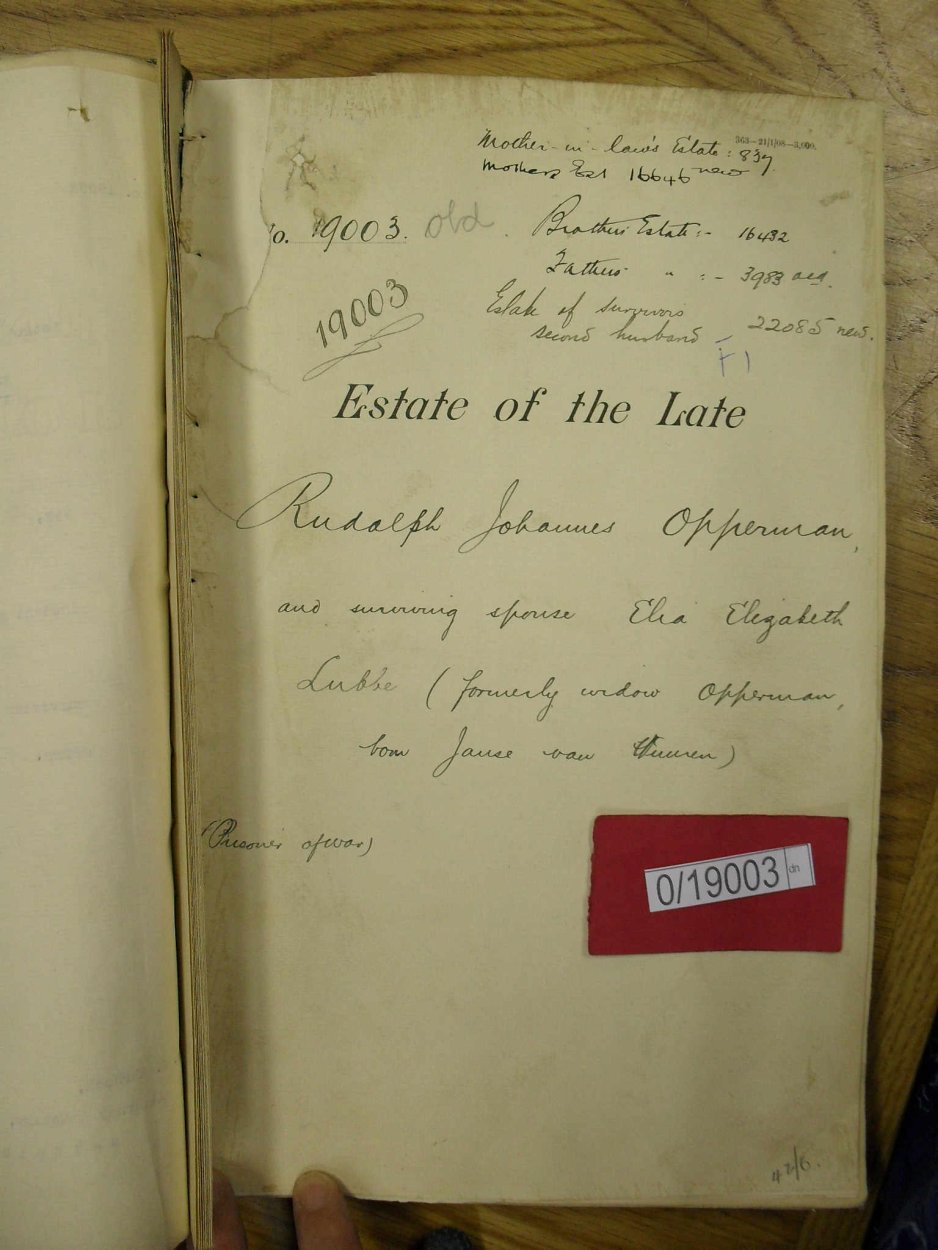 363—21/1/08—3,000.
Mother-in-law's Estate: 839
Mothers Est 16646 new
No. 19003. old.
Brothers Estate:- 16432
Fathers " :- 3983
19003
Estate of survivors
second husband - 22085 new.
F1
Estate of the Late
Rudolph Johannes Opperman,
and surviving spouse Elia Elizabeth
Lubbe (formerly widow Opperman,
born Janse van Vuuren)
(Prisoner of war)
0/19003 dn
42/6.